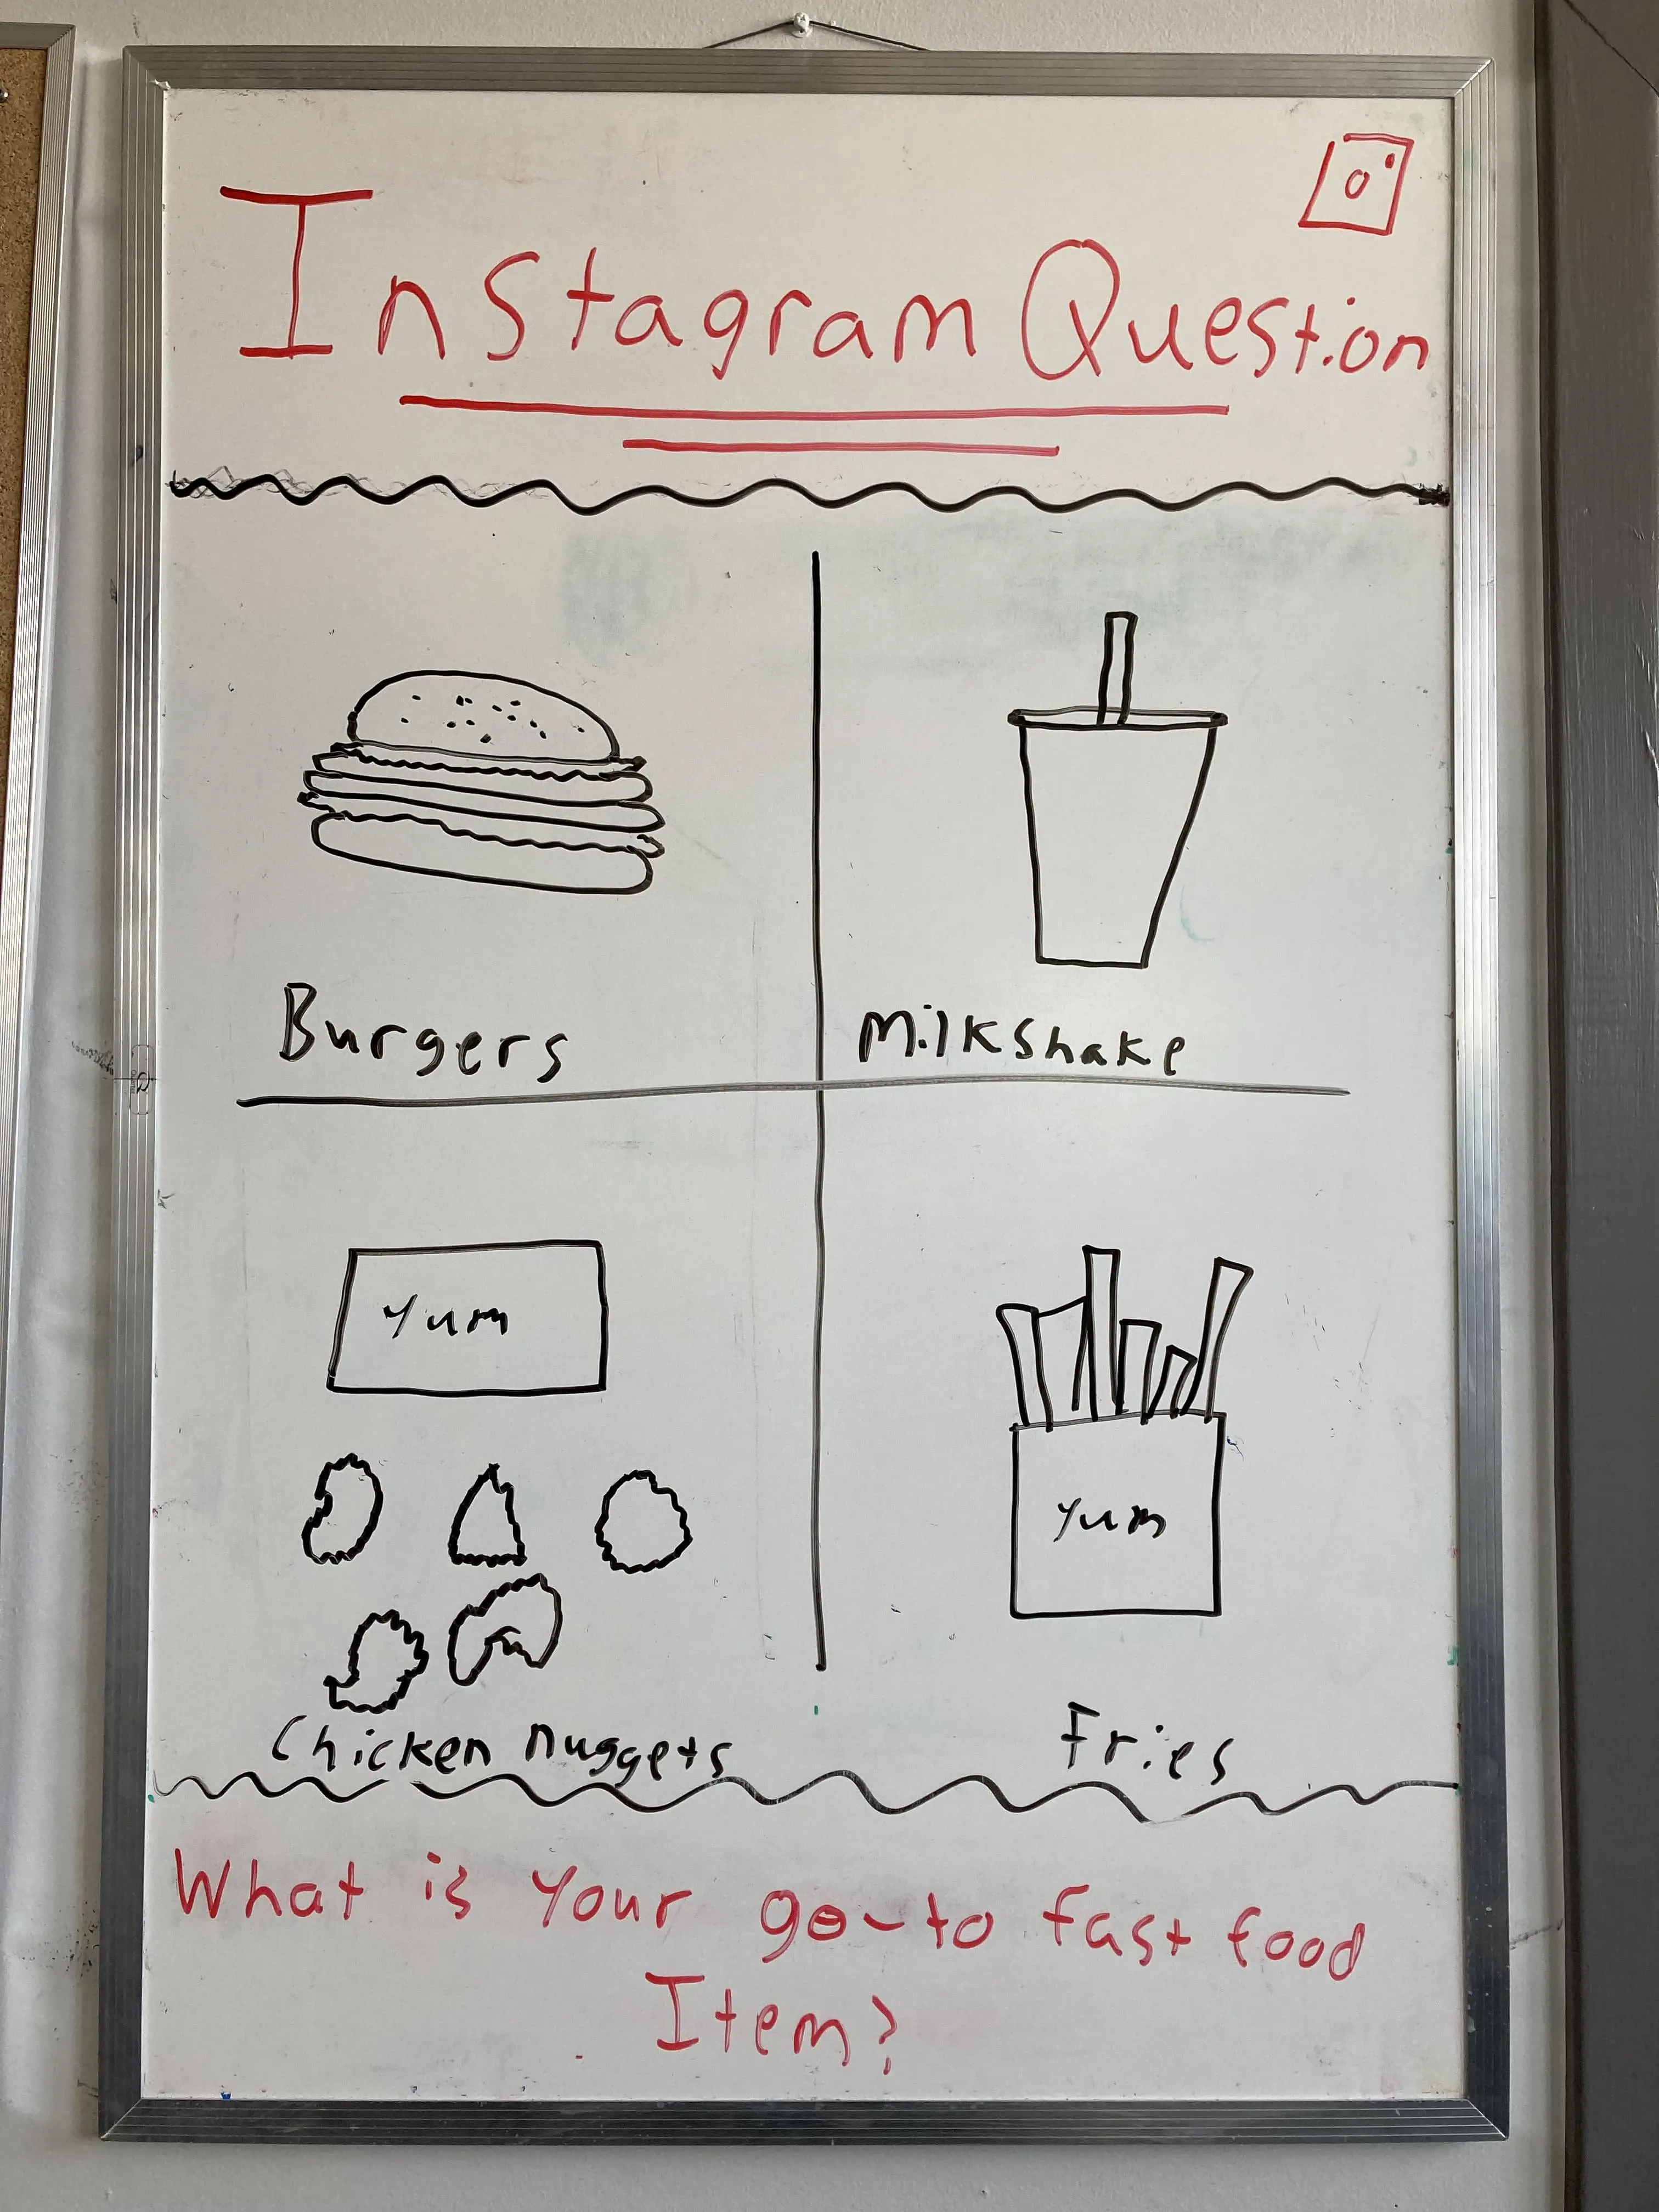 Instagram Question
Burgers
Milkshake
Yum
Chicken nuggets
Yum
Fries
What is your go-to fast food
Item?